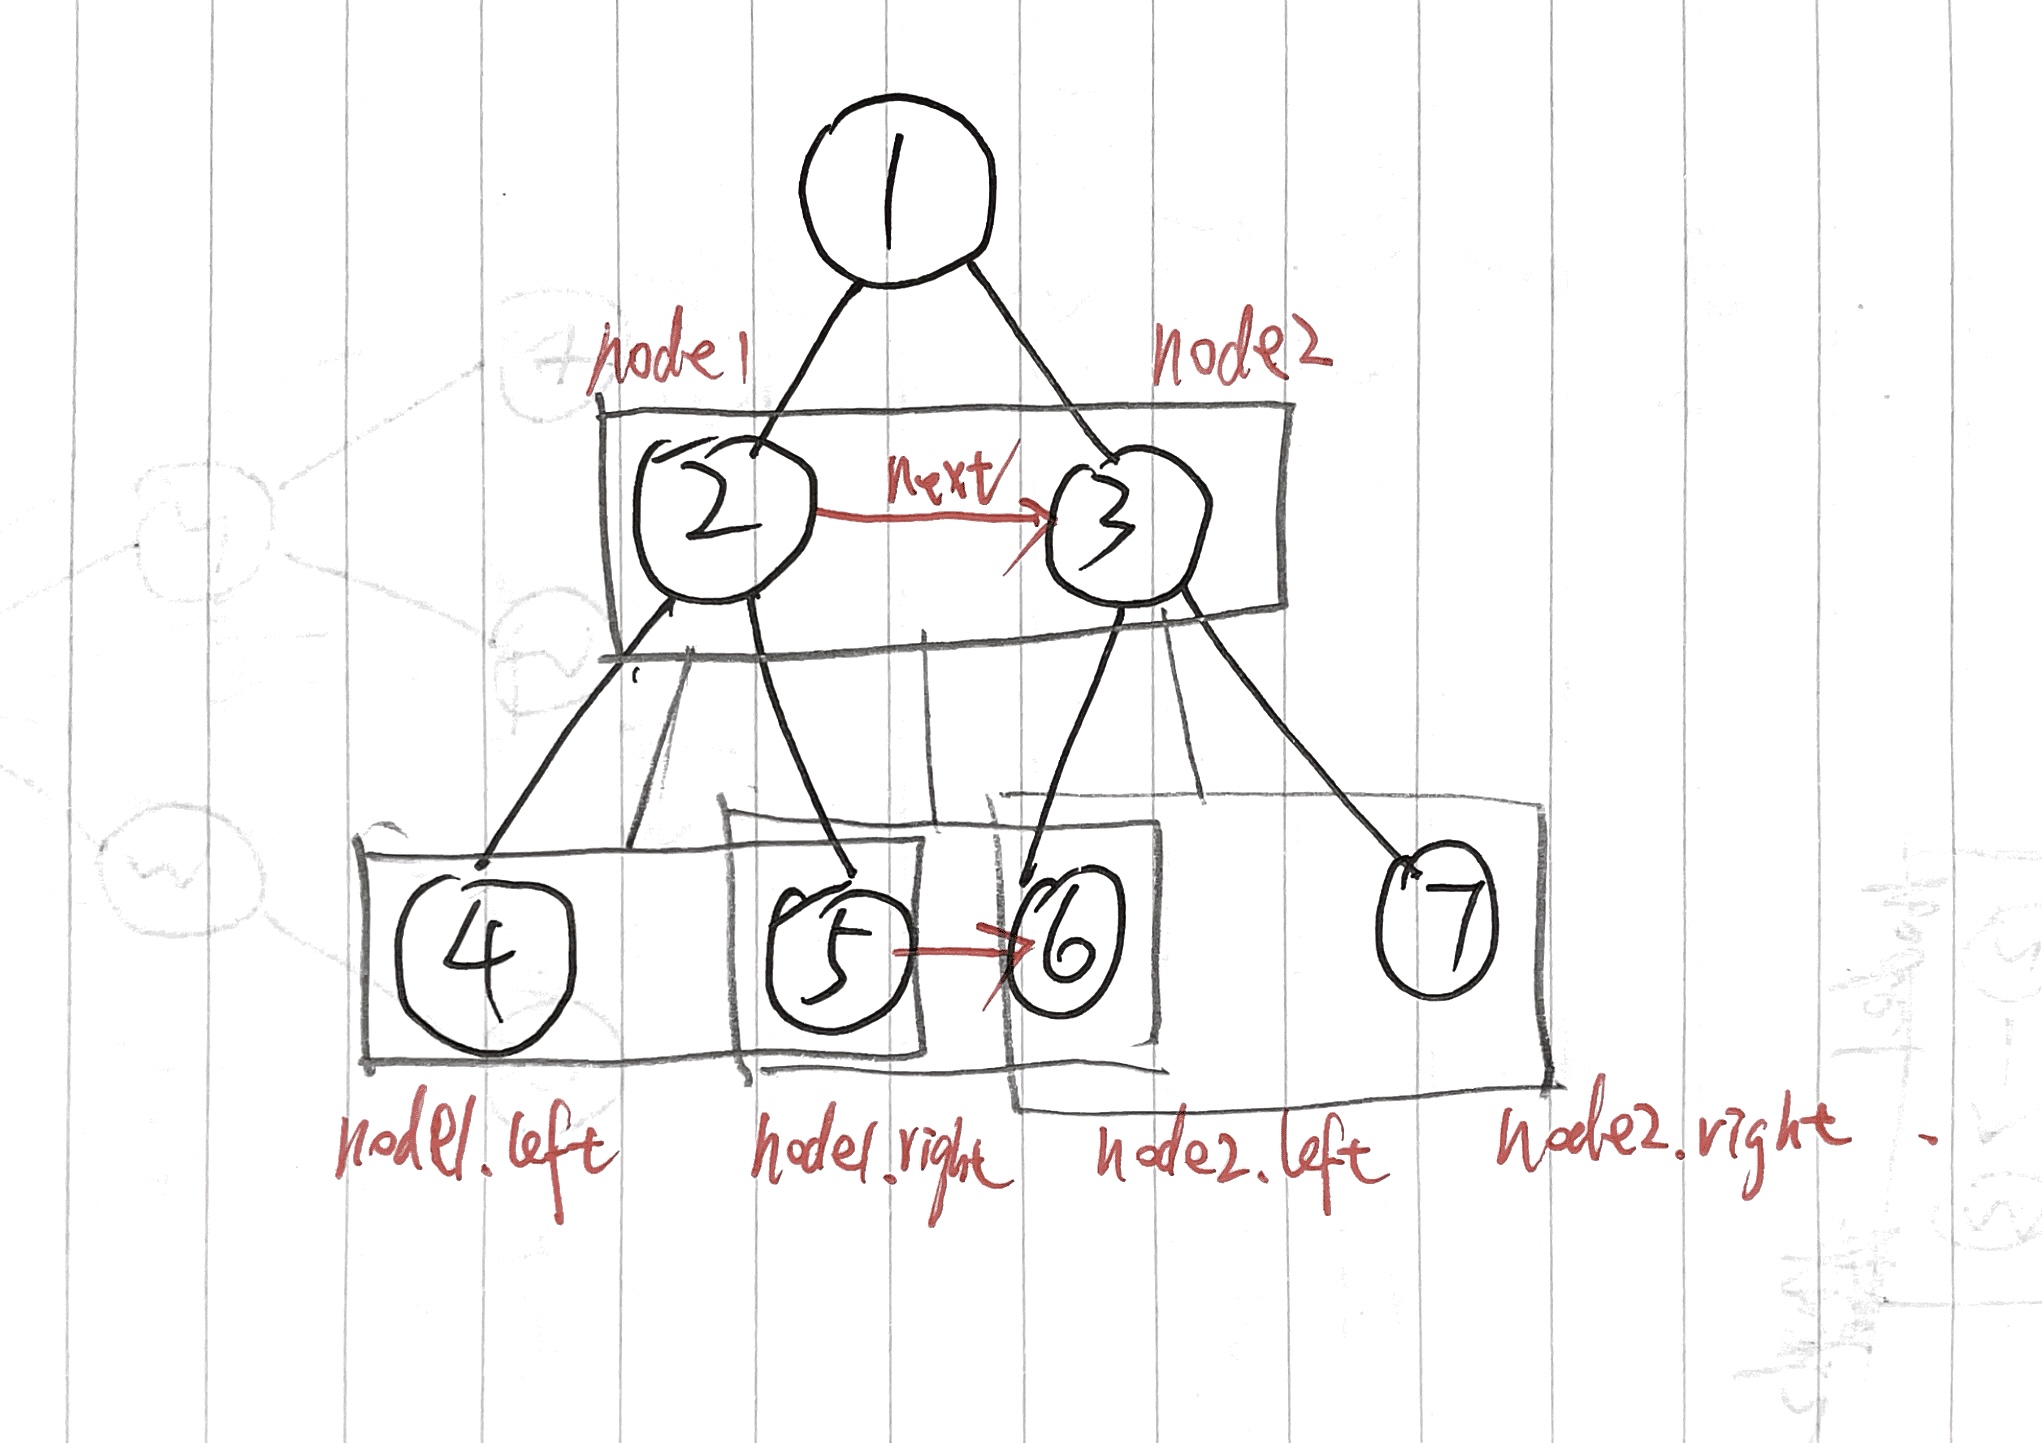 1
node1 node2
2 next 3
4 5 6 7
node1.left node1.right node2.left node2.right